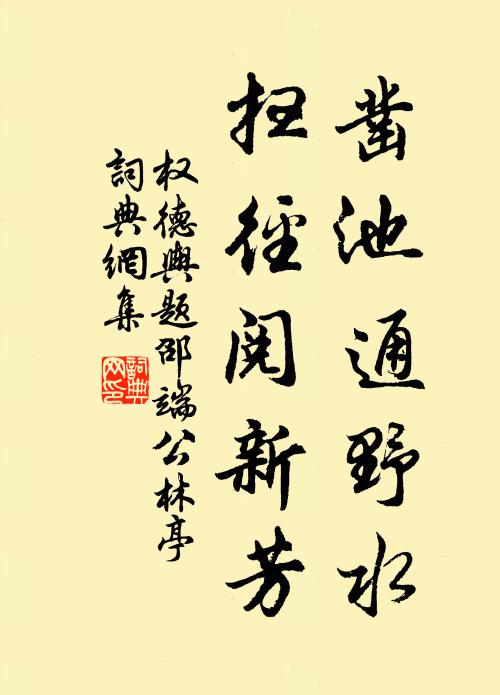 凿池通野水
扫徑阅新芳
权德輿题邵端公林亭
詞典網集
詞典
网印